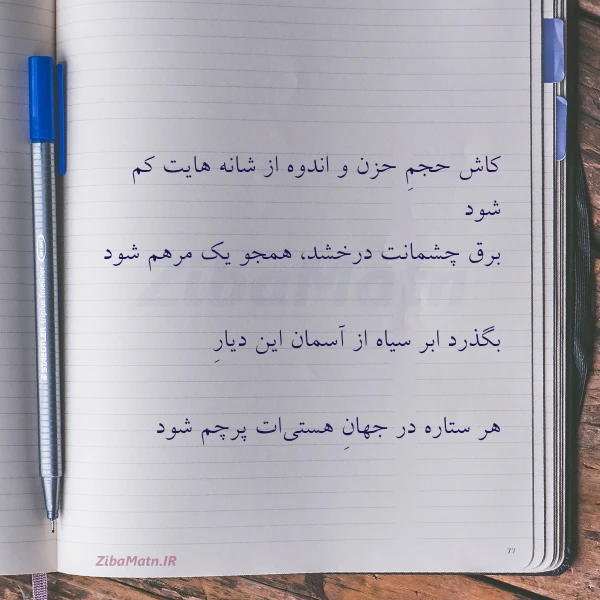 کاش حجمِ حزن و اندوه از شانه هایت کم
شود
برق چشمانت درخشد، همجو یک مرهم شود
بگذرد ابر سیاه از آسمان این دیارِ
هر ستاره در جهانِ هستی‌ات پرچم شود
ZibaMatn.IR
77